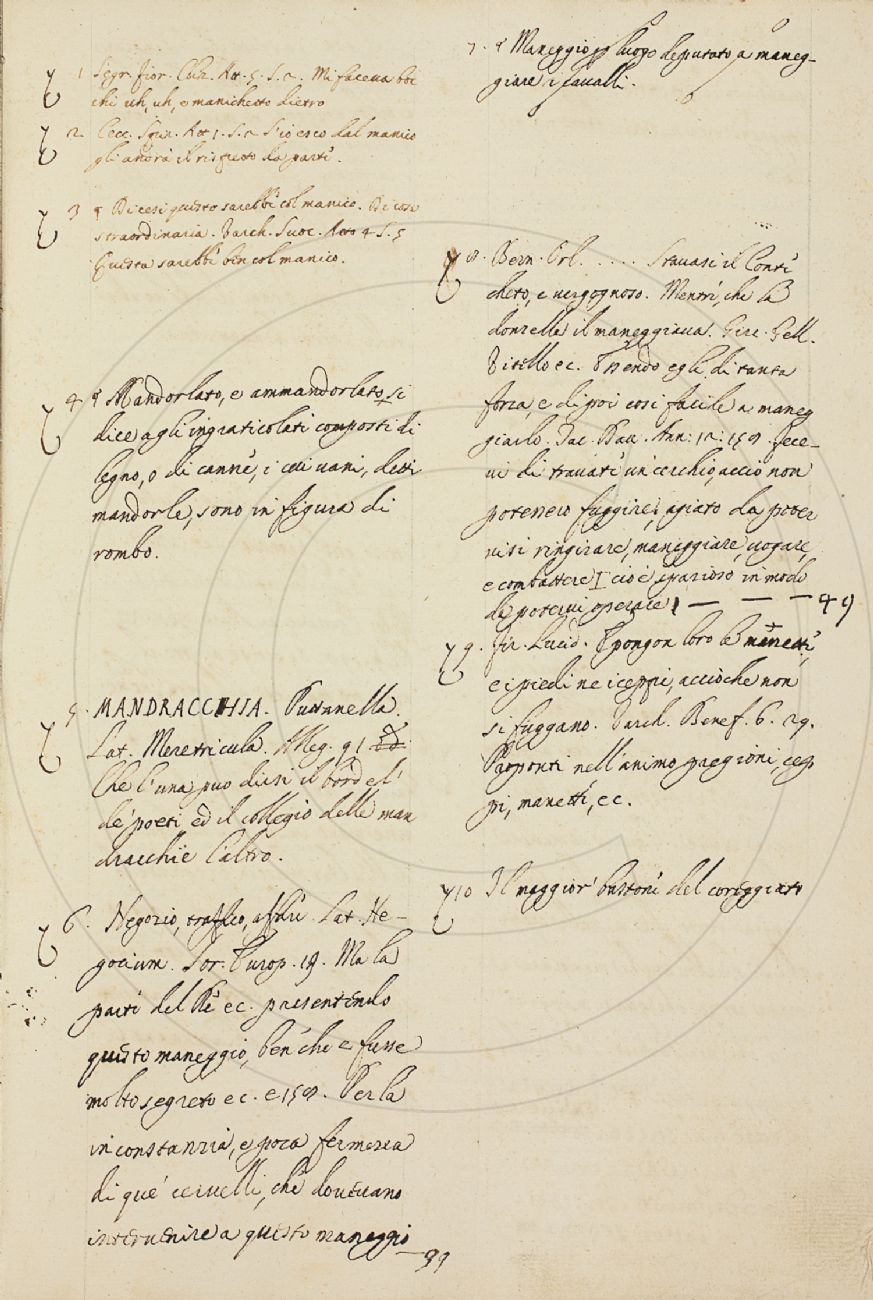 1 Segr. Fior. Cliz. At. 5. S. 2. Mi faceva boc
chi uh, uh, e manichetto dietro
2 Cecc. Spir. At. 1. S. 2 S'io esco dal manico
gli andrà il rispetto da parte.
3 § Dicesi questo sarebbe col manico. Di cosa
straordinaria. Varch. Suoc. Atto 4 S. 5
Questa sarebbe ben col manico.
4 § Mandorlato, e ammandorlato si
dice agli ingraticolati composti di
legno, o di canne, i cui vani, detti
mandorle, sono in figura di
rombo.
5. MANDRACCHIA. Puttanella.
Lat. Meretricula. Alleg. 91
Che l'una può dirsi il bordel
de' poeti ed il collegio delle man
dracchie l'altro.
6. Negozio, traffico, affare. Lat. Ne-
gocium. Stor. Europ. 19. Ma la
parte del Rè ec. presentendo
questo maneggio, ben che e fusse
molto segreto ec. e 150. Per la
inconstanzia, e poca fermezza
di que' cervelli, che dovevano
intervenire a questo maneggio
99
7. § Maneggio luogo deputato a maneg-
giare i cavalli.
8. Bern. Orl. ..... Stavasi il Conte
cheto, e vergognoso. Mentre, che la
donzella il maneggiava. Circ. Gell.
Vitello ec. Essendo egli di tanta
forza, e dipoi così facile a maneg
giarlo. Tac. Dav. Ann. 12. 150. Fece-
vi di travate un cerchio, acciò non
potessero fuggire; agiato da poter
visi rigirare, maneggiare, vogare,
e combattere [ cioè spazioso in modo
da potervi operare ] — — — 49
9. Fir. Lucid. E pongon loro le manette,
e i piedi ne i ceppi, acciò che non
si fuggano. Varch. Benef. 6. 29.
Proponti nell'animo prigioni, cep
pi, manette, ec.
10 Il maggior bastone del coreggiato